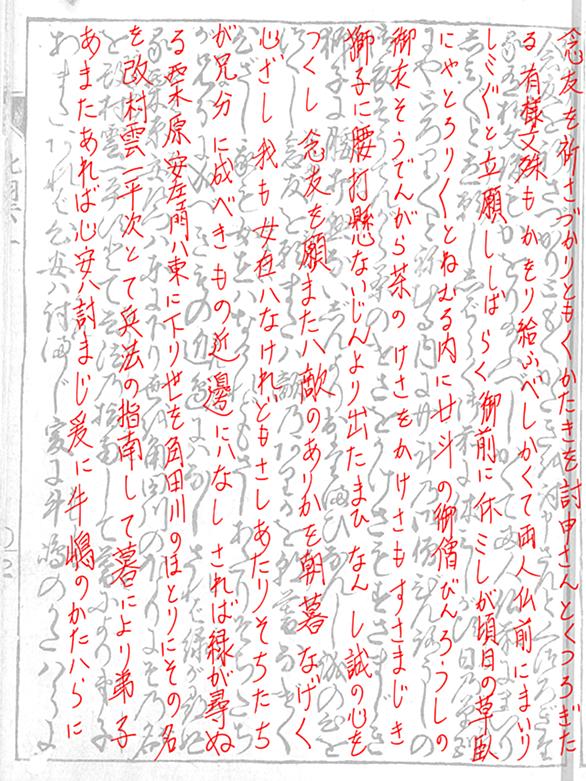 念友を祈さづかりともくかたきを討申さんとくつろぎた
る有様文殊もかをり給ふべしかくて両人仏前にまいり
しミ〴〵と立願ししばらく御前に休ミしが頃日の草臥
にやとろり〳〵とねむる内に廿斗の御僧びんろうしの
御衣そうでんがら茶のけさをかけさもすさまじき
獅子に腰打懸ないじんより出たまひなんし誠の心を
つくし念友を願また八敵のありかを朝暮なげく
心ざし我も女在ハなけれどもさしあたりそちたち
が兄分に成べきもの近邊にハなしされば縁が尋ぬ
る栗原安左衛門ハ東に下り世を角田川のほとりにその名
を改村雲一平次とて兵法の指南して暮により弟子
あまたあれば心安ハ討まじ爰に牛嶋のかたハらに